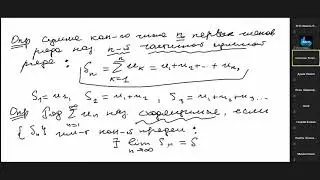 Опр Сумма кон-го числа n первых членов
ряда наз n-й частичной суммой
ряда: Sₙ = ∑ₖ₌₁ⁿ uₖ = u₁+u₂+...+uₙ,
S₁=u₁, S₂=u₁+u₂, S₃=u₁+u₂+u₃...
Опр Ряд ∑ₙ₌₁^∞ uₙ наз сходящимся, если
{Sₙ} им-т кон-й предел:
∃ lim Sₙ = S
n→∞